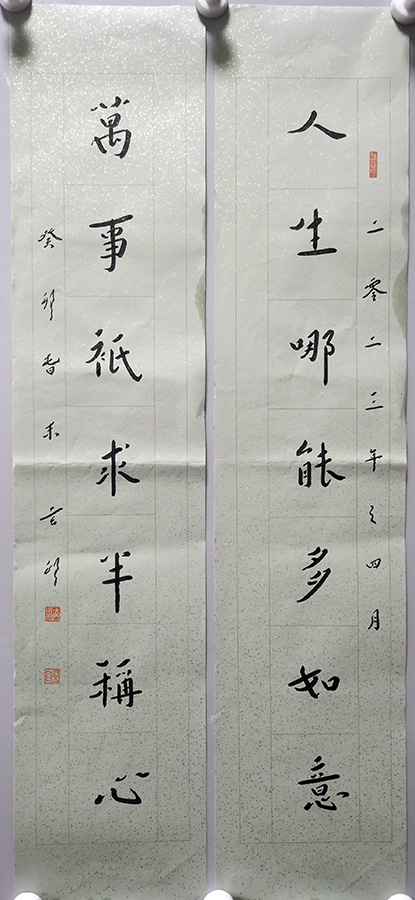 二零二三年之四月
人生哪能多如意
萬事祇求半稱心
癸卯旾末